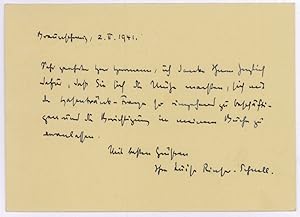 Braunschweig, 2. II. 1941.
Sehr geehrter Herr Hermann, ich danke Ihnen herzlich
dafür, daß Sie sich die Mühe machten, sich mit
der Frage so eingehend zu beschäfti-
gen und die Berichtigung in meinem Buche zu
veranlassen.
Mit besten Grüßen
Ihre Luise Rinser-Schnell.